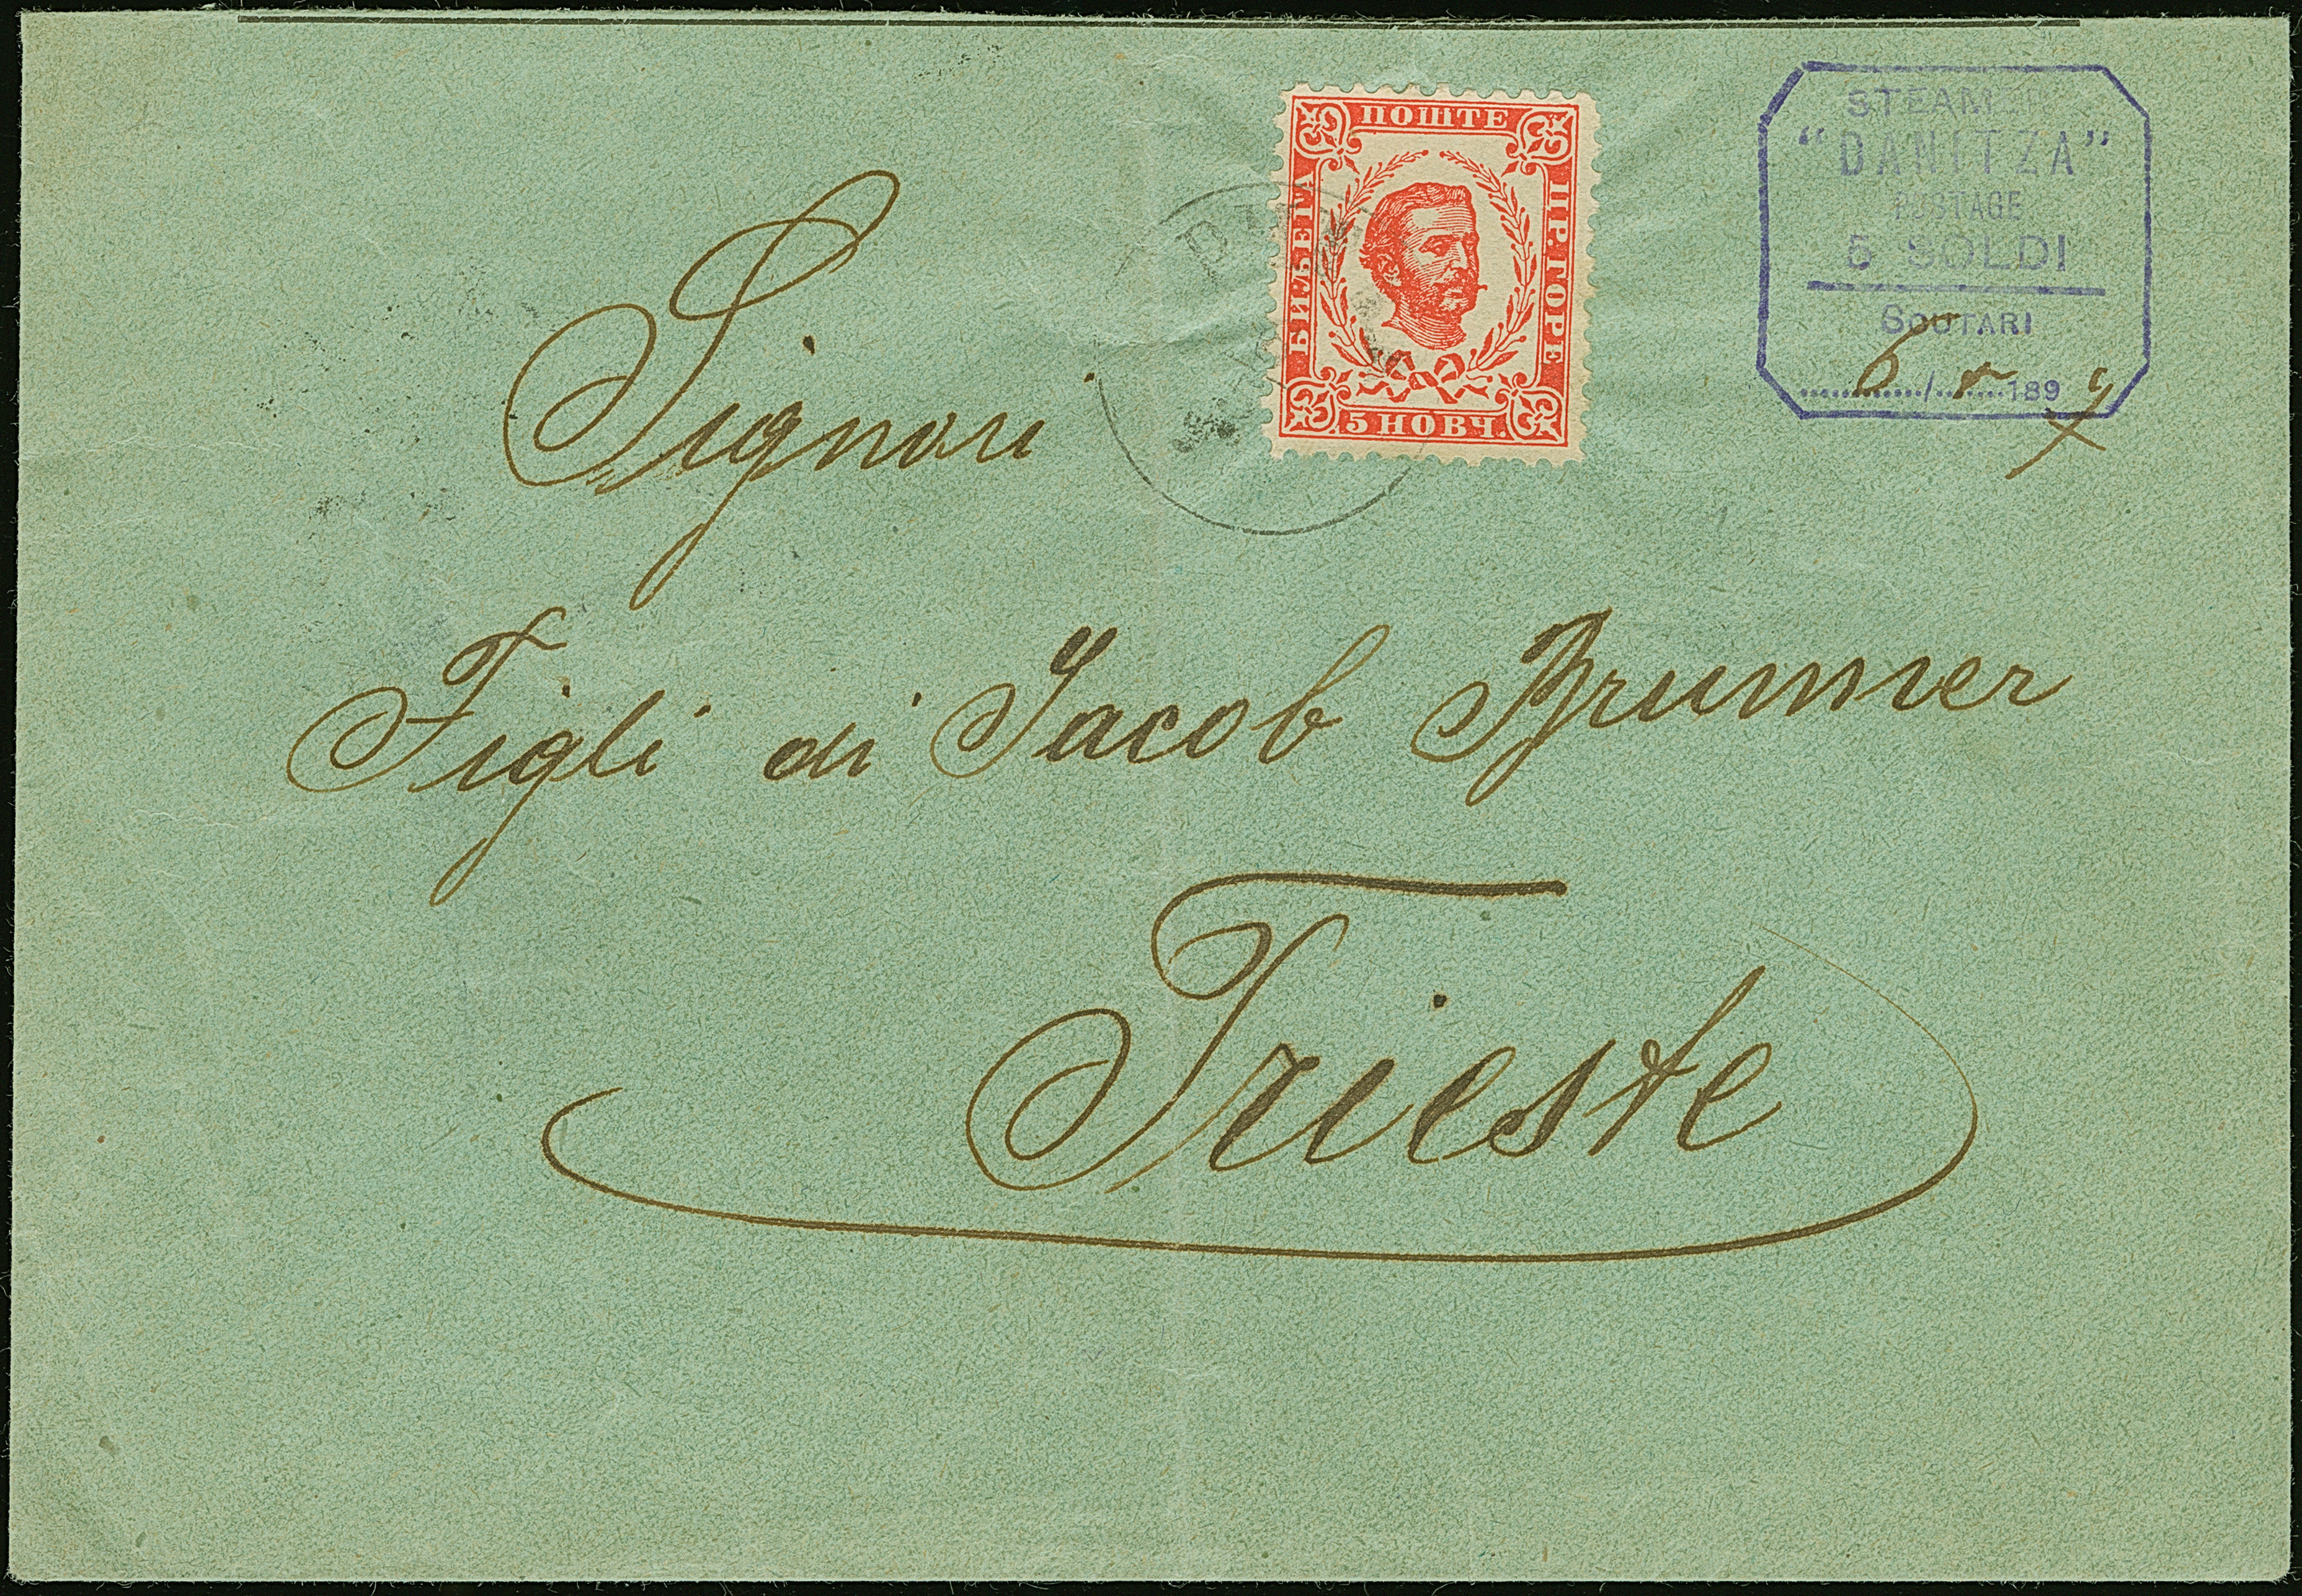 ПОШТЕ
БИЉЕГА
ПР. ГОРЕ
5 НОВЧ.
STEAM
"DANITZA"
POSTAGE
5 SOLDI
SCUTARI
6/5 189
Signori
Figli di Jacob Brunner
Trieste